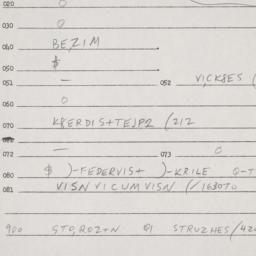 020 0
030 0
040 BEZIM
050 $
051 — 052 VICKBES (
060 0
070 K8ERDIS+TEJPZ (212
072 — 073 0
080 $ )-FEDERVIS+ )-KRILE Q-T
081 VISN VICUMVISN (/163070
900 STQROZ+N 01 STRUZHES/420